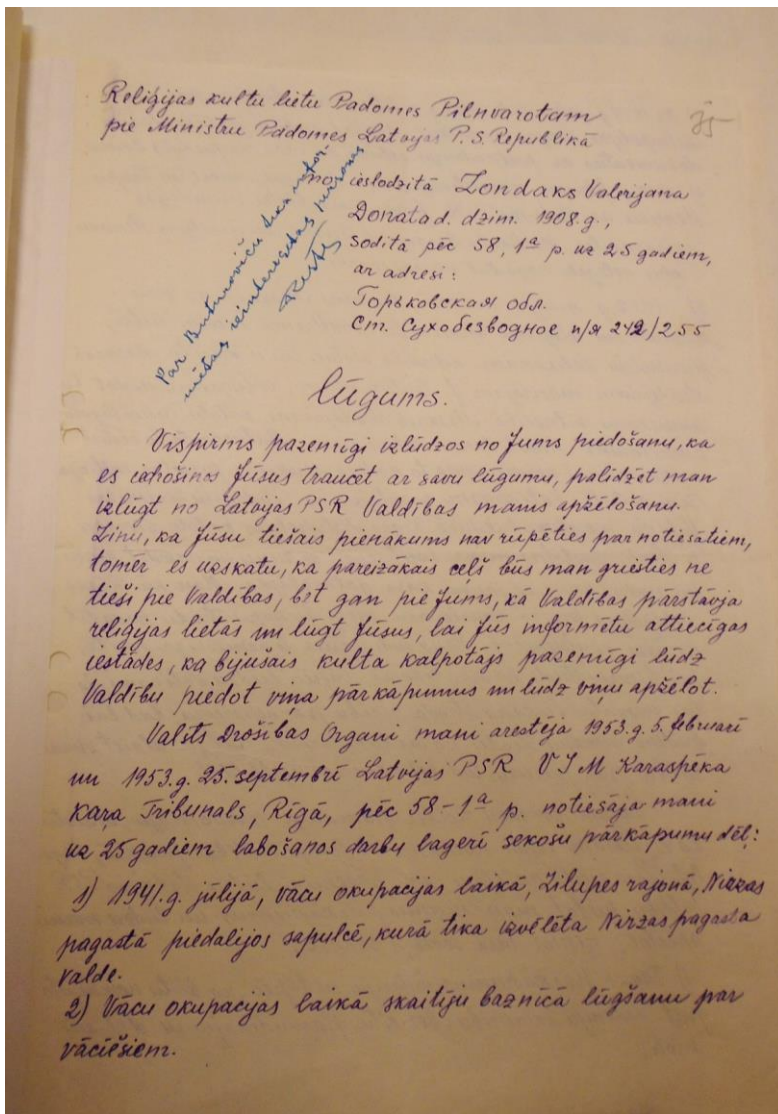 Religijas kultu lietu Padomes Pilnvarotam
pie Ministru Padomes Latvijas P. S. Republikā
no ieslodzītā Zondaks Valerijana
Donata d. dzim. 1908.g.,
sodītā pēc 58, 1ª p. uz 25 gadiem,
ar adresi:
Горьковская обл.
ст. Сухобезводное п/я 242/255
Par
ieinteresētas personas
Lūgums.
Vispirms pazemīgi izlūdzos no Jums piedošanu, ka
es iedrošinos Jūsus traucēt ar savu lūgumu, palīdzēt man
izlūgt no Latvijas PSR Valdības manis apžēlošanu.
Zinu, ka Jūsu tiešais pienākums nav rūpēties par notiesātiem,
tomēr es uzskatu, ka pareizākais ceļš būs man griesties ne
tieši pie Valdības, bet gan pie Jums, kā Valdības pārstāvja
religijas lietās un lūgt Jūsus, lai Jūs informētu attiecīgas
iestādes, ka bijušais kulta kalpotājs pazemīgi lūdz
Valdību piedot viņa pārkāpumus un lūdz viņu apžēlot.
Valsts Drošības Organi mani arestēja 1953.g. 5. februarī
un 1953.g. 25. septembrī Latvijas PSR VIM Karaspēka
Kara Tribunals, Rīgā, pēc 58-1ª p. notiesāja mani
uz 25 gadiem labošanos darbu lagerī sekošu pārkāpumu dēļ:
1) 1941.g. jūlijā, vācu okupacijas laikā, Zilupes rajonā, Nirzas
pagastā piedalijos sapulcē, kurā tika izvēlēta Nirzas pagasta
valde.
2) Vācu okupacijas laikā skaitīju baznīcā lūgšanu par
vāciešiem.